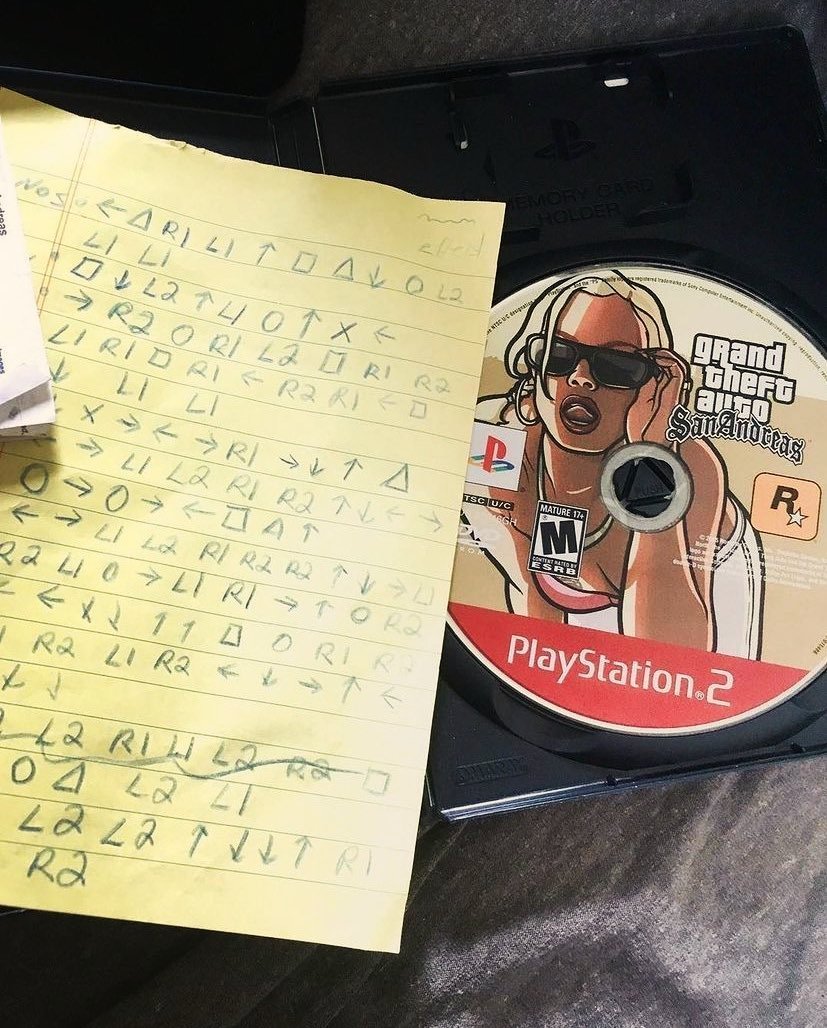 Nos. ← △ R1 L1 ↑ □ △ ↓ O L2
L1 L1
□ ↓ L2 ↑ L1 O ↑ X ←
→ R2 O R1 L2 □ R1 R2
L1 R1 □ R1 ← R2 R1 ← □
↓ L1 L1
X → ← → R1 → ↓ ↑ △
→ L1 L2 R1 R2 ↑ ↓ ← →
O → O → ← □ △ ↑
← → L1 L2 R1 R2 R2 ↑ ↓ → □
R2 L1 O → L1 R1 → ↑ O R2
← ← X ↓ ↑ ↑ □ O R1 R2
R2 L1 R2 ← ↓ → ↑ ←
X ↓
L2 R1 L1 L2 R2 □
O △ L2 L1
L2 L2 ↑ ↓ ↓ ↑ R1
R2
MEMORY CARD
HOLDER
grand
theft
auto
San Andreas
PlayStation®2
MATURE 17+
M
CONTENT RATED BY
ESRB
NTSC U/C
R